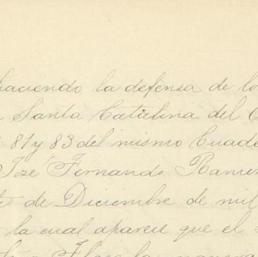 haciendo la defensa de lo
Santa Catalina del C
81 y 83 del mismo Cuade
José Fernando Ramir
de Diciembre de mil
la cual aparece que el